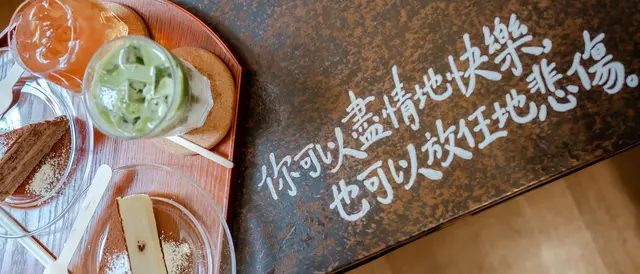 你可以盡情地快樂,
也可以放任地悲傷。